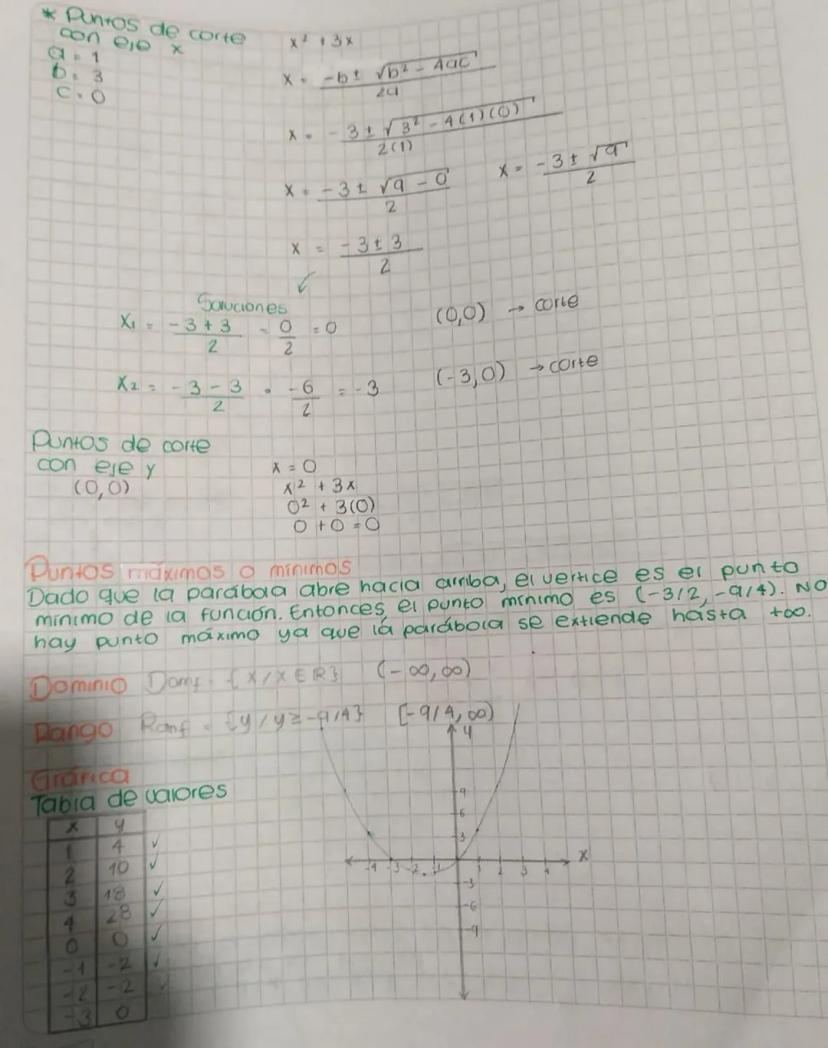 * Puntos de corte
con eje x
a = 1
b = 3
c = 0
x² + 3x
x = -b ± √b² - 4ac / 2a
x = -3 ± √3² - 4(1)(0) / 2(1)
x = -3 ± √9 - 0 / 2   x = -3 ± √9 / 2
x = -3 ± 3 / 2
Soluciones
x₁ = -3 + 3 / 2 = 0 / 2 = 0   (0,0) → corte
x₂ = -3 - 3 / 2 = -6 / 2 = -3   (-3,0) → corte
Puntos de corte
con eje y
(0,0)
x = 0
x² + 3x
0² + 3(0)
0 + 0 = 0
Puntos máximos o mínimos
Dado que la parábola abre hacia arriba, el vertice es el punto
mínimo de la función. Entonces, el punto mínimo es (-3/2, -9/4). No
hay punto máximo ya que la parábola se extiende hasta +∞.
Dominio Domf = {x/x ∈ R}   (-∞, ∞)
Rango Ranf = {y/y ≥ -9/4}   [-9/4, ∞)
Gráfica
Tabla de valores
x y
1 4 ✓
2 10 ✓
3 18 ✓
4 28 ✓
0 0 ✓
-1 -2 ✓
-2 -2 ✓
-3 0
y
9
6
3
-4 -3 -2 -1 1 2 3 4 x
-3
-6
-9